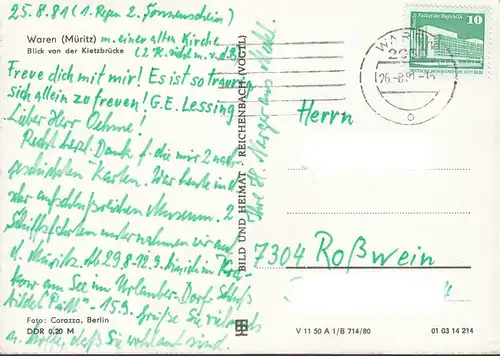 25.8.81 (1. Regen 2. Sonnenschein)
Waren (Müritz) m. einer alten Kirche
Blick von der Kietzbrücke
Freue dich mit mir! Es ist so traurig
sich allein zu freuen! G.E. Lessing
Lieber Herr Oehme!
Recht herzl. Dank f. die mir 2 nach-
geschickten Karten. War heute in d.
sehr aufschlußreichen Museum. 2
Schiffsfahrten unternahmen wir auf
d. Müritz. Ab 29.8-12.9. bin ich in
kow am See im Urlauber-Dorf-Schloß
15.9. Grüße Sie vielmals
u. hoffe, daß Sie wohlauf sind.
Ihre
Foto: Corazza, Berlin
DDR 0,20 M
BILD UND HEIMAT REICHENBACH (VOGTL)
V 11 50 A 1/B 714/80
01 03 14 214
Herrn
7304 Roßwein
Berlin, Palast der Republik
10
DDR
WAREN
26.-8.81